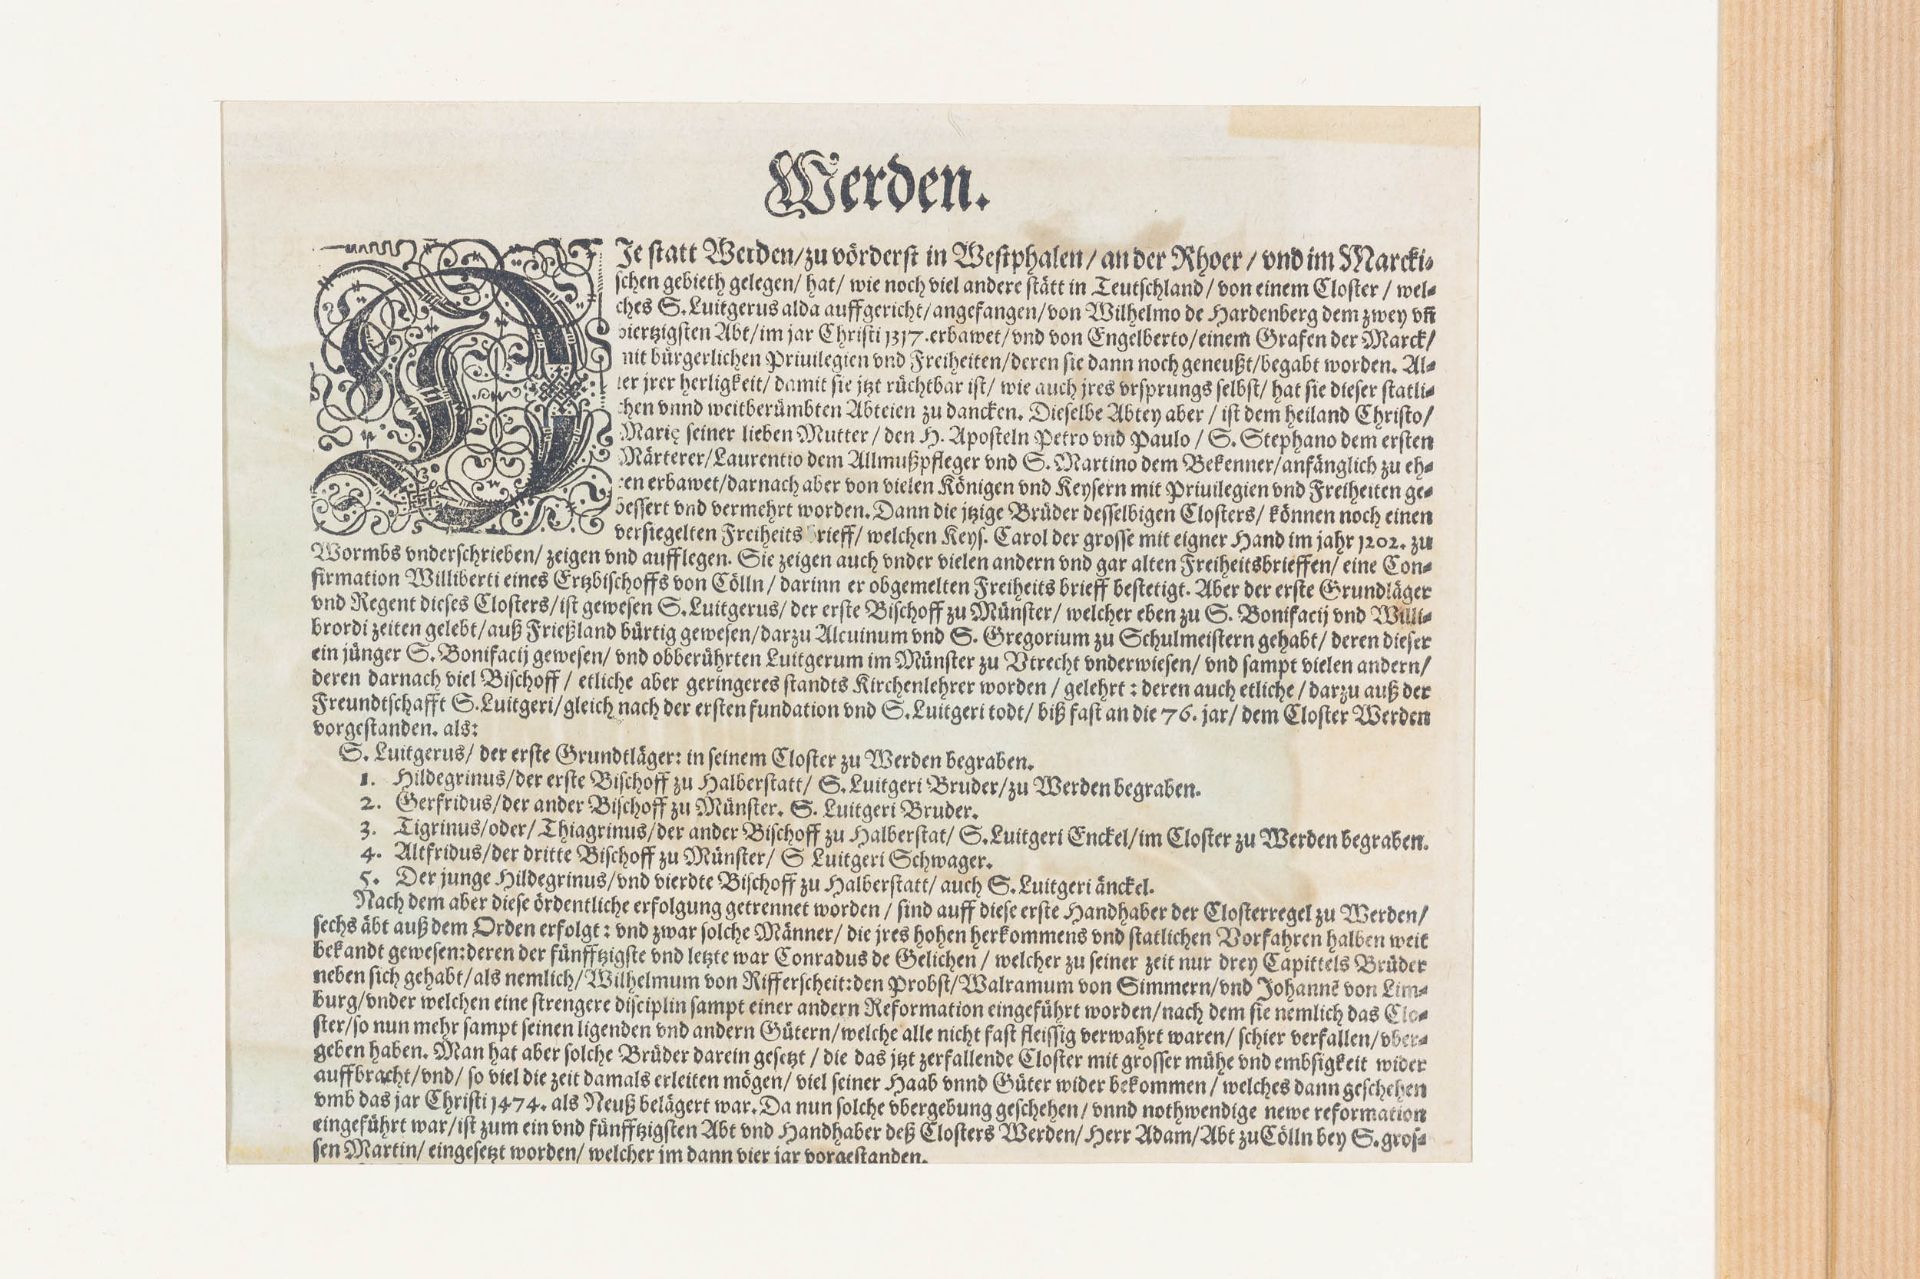 Werden.
DJe statt Werden/zu vörderst in Westphalen/ an der Rhoer/ vnd im Marcki⸗
schen gebieth gelegen/ hat/ wie noch viel andere stätt in Teutschland/ von einem Closter/ wel⸗
ches S. Luitgerus alda auffgericht/angefangen/von Wilhelmo de Hardenberg dem zwey vñ
viertzigsten Abt/im jar Christi 1317.erbawet/vnd von Engelberto/einem Grafen der Marck/
mit bürgerlichen Priuilegien vnd Freiheiten/deren sie dann noch geneußt/begabt worden. Al⸗
ler jrer herligkeit/ damit sie jtzt rüchtbar ist/ wie auch jres vrsprungs selbst/ hat sie dieser statli⸗
chen vnnd weitberümbten Abteien zu dancken. Dieselbe Abtey aber/ ist dem heiland Christo/
Marię seiner lieben Mutter/ den H. Aposteln Petro vnd Paulo/ S. Stephano dem ersten
Märterer/Laurentio dem Allmußpfleger vnd S. Martino dem Bekenner/anfänglich zu eh⸗
ren erbawet/darnach aber von vielen Königen vnd Keysern mit Priuilegien vnd Freiheiten ge⸗
bessert vnd vermehrt worden. Dann die jtzige Brüder desselbigen Closters/ können noch einen
versiegelten Freiheits brieff/ welchen Keys. Carol der grosse mit eigner Hand im jahr 1202. zu
Wormbs vnderschrieben/ zeigen vnd aufflegen. Sie zeigen auch vnder vielen andern vnd gar alten Freiheitsbrieffen/ eine Con⸗
firmation Williberti eines Ertzbischoffs von Cölln/ darinn er obgemelten Freiheits brieff bestetigt. Aber der erste Grundläger
vnd Regent dieses Closters/ist gewesen S. Luitgerus/ der erste Bischoff zu Münster/ welcher eben zu S. Bonifacij vnd Willi⸗
brordi zeiten gelebt/auß Frießland bürtig gewesen/darzu Alcuinum vnd S. Gregorium zu Schulmeistern gehabt/ deren dieser
ein jünger S. Bonifacij gewesen/ vnd obberührten Luitgerum im Münster zu Vtrecht vnderwiesen/ vnd sampt vielen andern/
deren darnach viel Bischoff/ etliche aber geringeres standts Kirchenlehrer worden/ gelehrt: deren auch etliche/ darzu auß der
Freundtschafft S.Luitgeri/gleich nach der ersten fundation vnd S.Luitgeri todt/ biß fast an die 76. jar/ dem Closter Werden
vorgestanden. als:
S. Luitgerus/ der erste Grundtläger: in seinem Closter zu Werden begraben.
1. Hildegrinus/der erste Bischoff zu Halberstatt/ S.Luitgeri Bruder/zu Werden begraben.
2. Gerfridus/der ander Bischoff zu Münster. S. Luitgeri Bruder.
3. Tigrinus/oder/Thiagrinus/der ander Bischoff zu Halberstat/ S.Luitgeri Enckel/im Closter zu Werden begraben.
4. Altfridus/der dritte Bischoff zu Münster/ S Luitgeri Schwager.
5. Der junge Hildegrinus/vnd vierdte Bischoff zu Halberstatt/ auch S.Luitgeri änckel.
Nach dem aber diese ördentliche erfolgung getrennet worden/ sind auff diese erste Handhaber der Closterregel zu Werden/
sechs äbt auß dem Orden erfolgt: vnd zwar solche Männer/ die jres hohen herkommens vnd statlichen Vorfahren halben weit
bekandt gewesen:deren der fünfftzigste vnd letzte war Conradus de Gelichen/ welcher zu seiner zeit nur drey Capittels Brüder
neben sich gehabt/als nemlich/Wilhelmum von Rifferscheit:den Probst/Walramum von Simmern/vnd Johannē von Lim⸗
burg/vnder welchen eine strengere disciplin sampt einer andern Reformation eingeführt worden/nach dem sie nemlich das Clo⸗
ster/so nun mehr sampt seinen ligenden vnd andern Gütern/welche alle nicht fast fleissig verwahrt waren/ schier verfallen/vber⸗
geben haben. Man hat aber solche Brüder darein gesetzt/ die das jtzt zerfallende Closter mit grosser mühe vnd embsigkeit wider
auffbracht/vnd/ so viel die zeit damals erleiten mögen/ viel seiner Haab vnnd Güter wider bekommen/ welches dann geschehen
vmb das jar Christi 1474. als Neuß belägert war. Da nun solche vbergebung geschehen/ vnnd nothwendige newe reformation
eingeführt war/ist zum ein vnd fünfftzigsten Abt vnd Handhaber deß Closters Werden/Herr Adam/Abt zu Cölln bey S. gros⸗
sen Martin/ eingesetzt worden/ welcher jm dann vier jar vorgestanden.